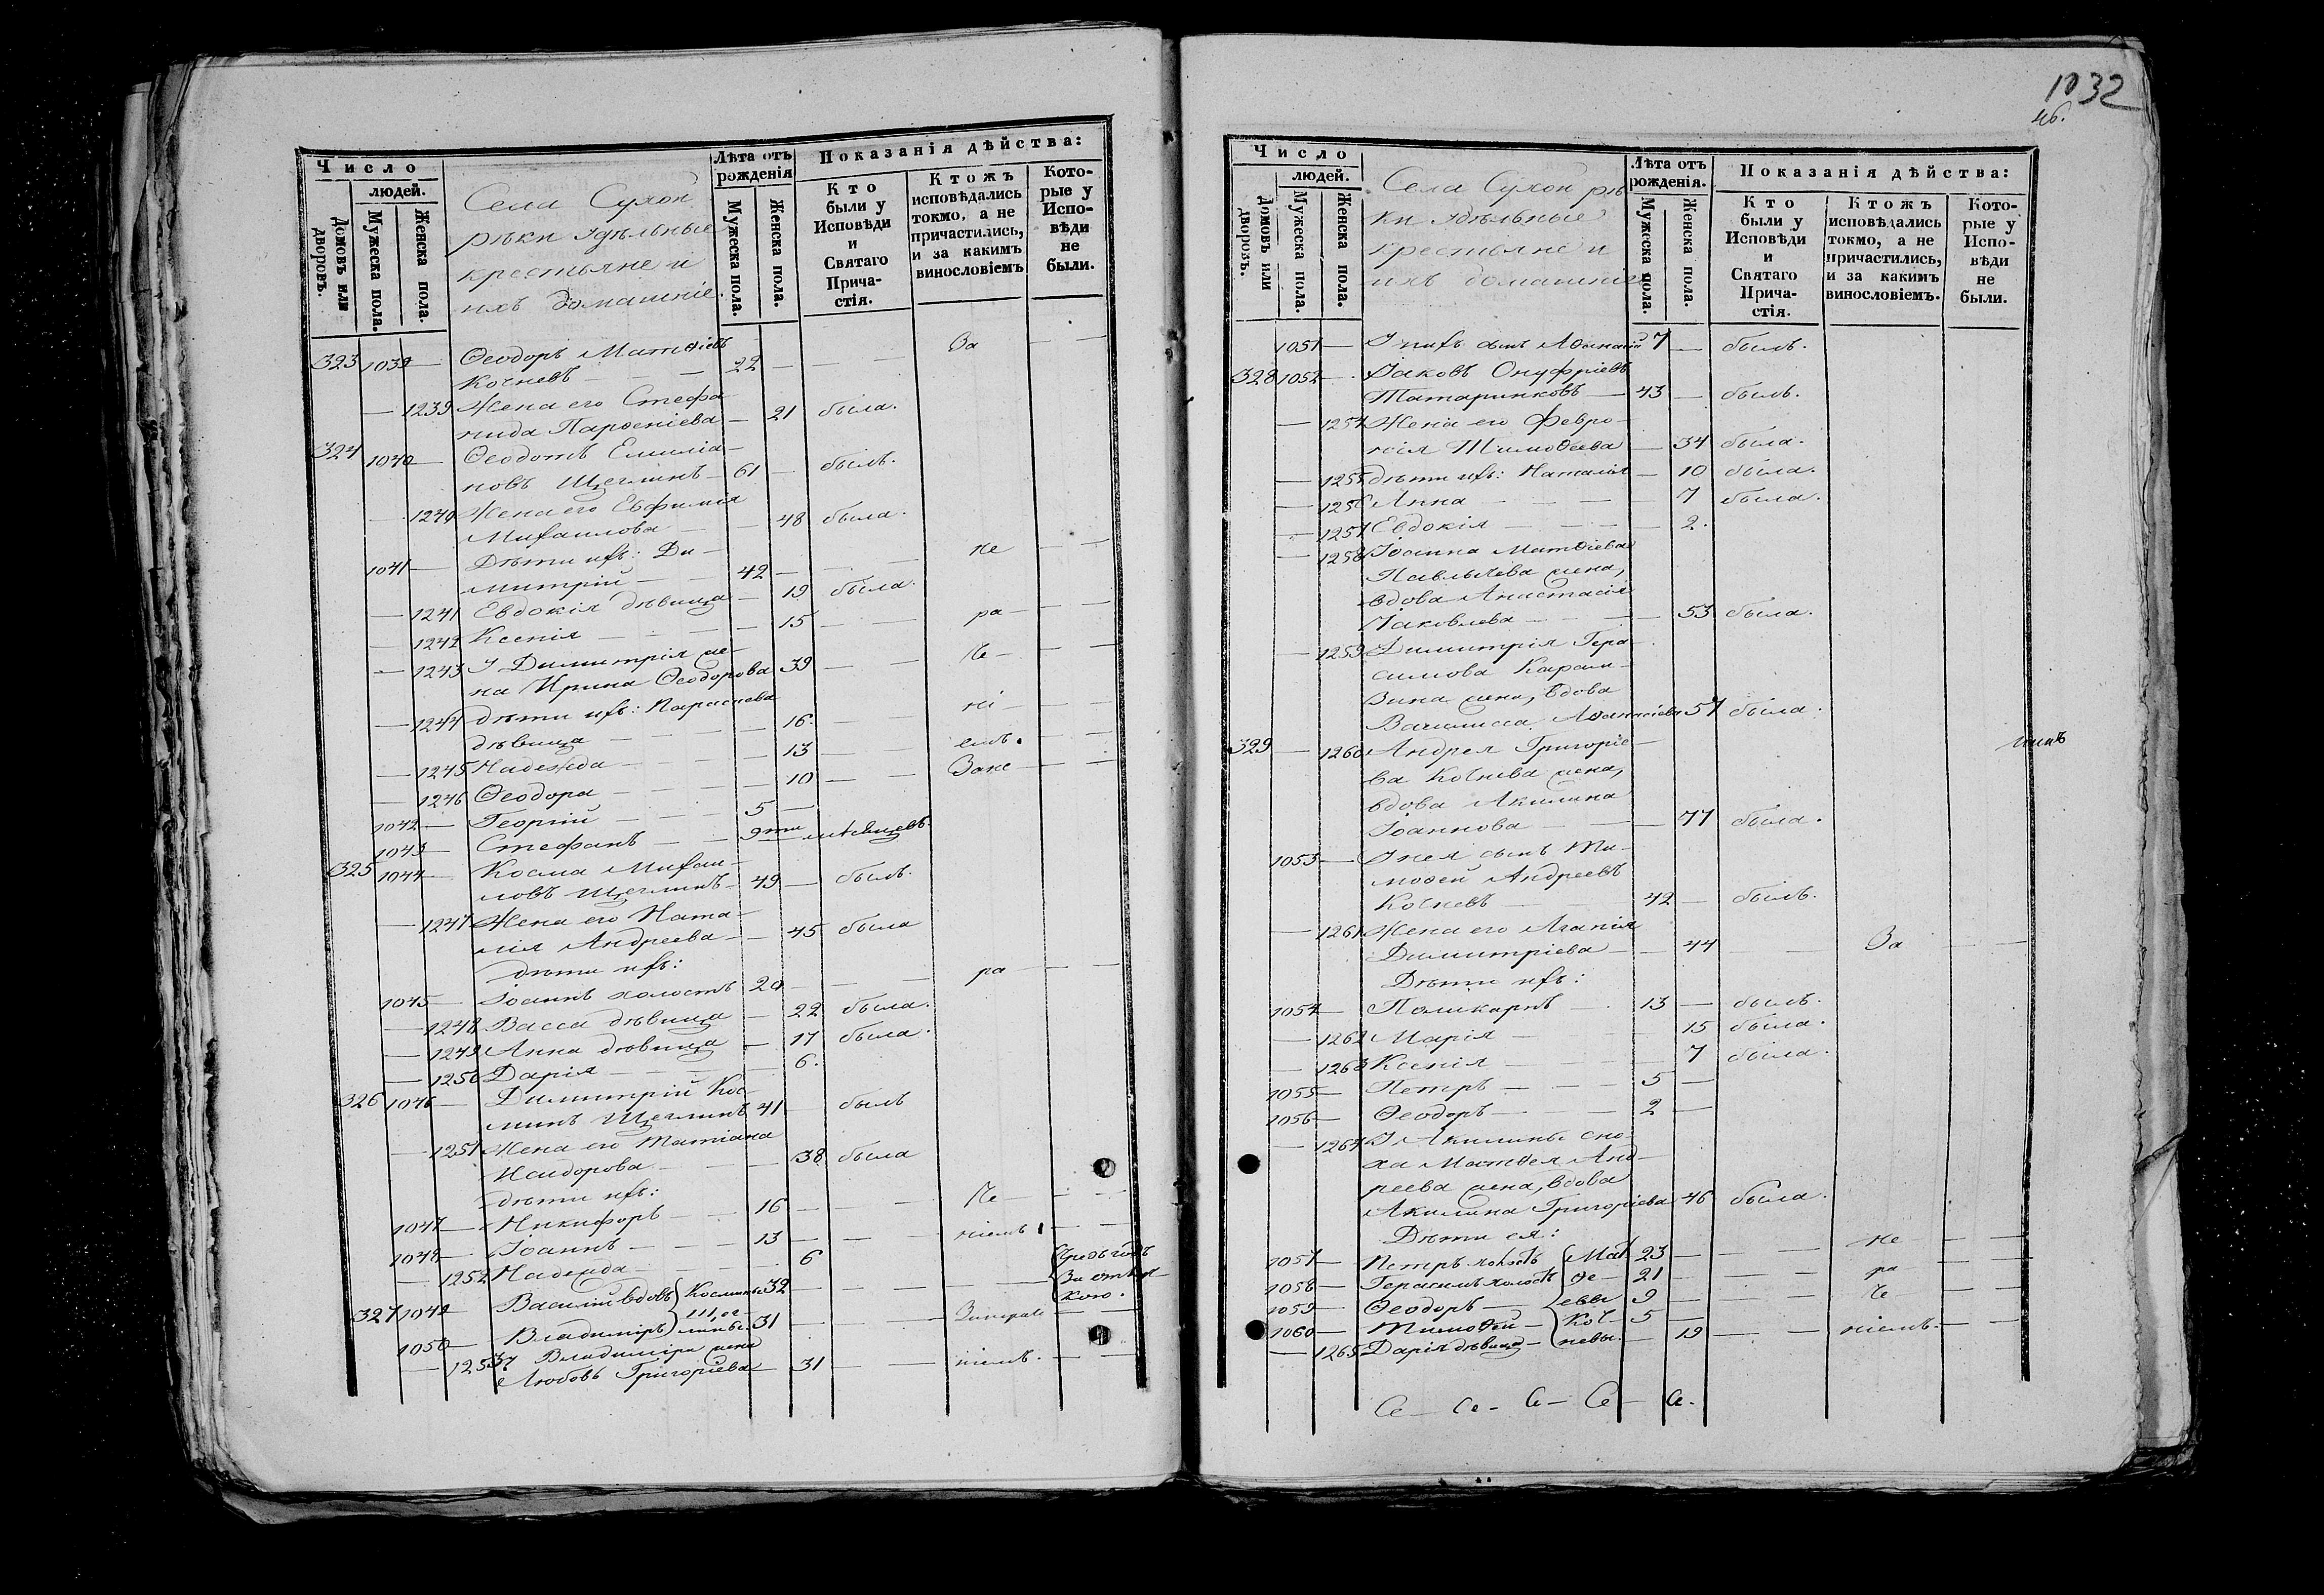 Число
людей.
Домовъ или дворовъ.
Мужеска пола.
Женска пола.
Села Сухой
рѣки удѣльные
крестьяне и
ихъ домашніе.
Лѣта отъ рожденія
Мужеска пола.
Женска пола.
Показанія дѣйства:
Кто были у Исповѣди и Святаго Прича-стія.
Ктожъ исповѣдались токмо, а не причастились, и за какимъ винословіемъ
Кото-рые у Испо-вѣди не были.
323 1039 — Ѳеодоръ Матѳіевъ За — —
Кочневъ — — 22 — — —
— 1239 Жена его Стефа
нида Парѳеніева — 21 была.
324 1040 — Ѳеодотъ Емиліа-
новъ Щеглинъ — 61 — былъ.
— 1240 Жена его Евфимія
Михаилова — — 48 была.
1041 — Дѣти ихъ: Ди- не — —
митрій — 42 — — —
— 1241 Евдокія дѣвица — 19 была.
— 1242 Ксенія — — — 15 — — ра — —
— 1243 У Димитрія же-
на Ирина Ѳеодорова 39 — — че — —
— 1244 дѣти ихъ: Параскева
дѣвица — — 16 — ні — —
— 1245 Надежда — — — 13 — — емъ. — —
— 1246 Ѳеодора — — — 10 — — Зане — —
1042 — Георгій — — 5 —
1043 — Стефанъ — — 9ти мѣсяцевъ.
325 1044 — Косма Михаи-
ловъ Щеглинъ — 49 — былъ.
— 1247 Жена его Ната-
лія Андреева — — 45 была
дѣти ихъ:
1045 — Іоаннъ холостъ 20 — — — ра — —
— 1248 Васса дѣвица — 22 была.
— 1249 Анна дѣвица — 17 была.
— 1250 Дарія — — — 6.
326 1046 — Димитрій Кос-
минъ Щеглинъ 41 — былъ
— 1251 Жена его Татіана
Исидорова — — — 38 была
дѣти ихъ:
1047 — Никифоръ — — 16 — — че — — —
1048 — Іоаннъ — — — 13 — — — ніемъ. — —
— 1252 Надежда — — — 6
327 1049 — Василій вдовъ Космины 32 — — — — За отлуч-
кою.
1050 — Владиміръ Щег-
лины. 31 — — — — —
— 1253 У Владиміра жена
Любовь Григоріева — 31 — — ніемъ. — —
1032
Число
людей.
Домовъ или дворовъ.
Мужеска пола.
Женска пола.
Села Сухой рѣ
ки удѣльные
крестьяне и
ихъ домашніе
Лѣта отъ рожденія.
Мужеска пола.
Женска пола.
Показанія дѣйства:
Кто были у Исповѣди и Святаго Прича-стія.
Ктожъ исповѣдались токмо, а не причастились, и за какимъ винословіемъ.
Кото-рые у Испо-вѣди не были.
1051 — У нихъ сынъ Аѳанасій 7 — былъ.
328 1052 — Іаковъ Онуфріевъ
Татаринковъ — 43 — былъ.
— 1254 Жена его Февро-
нія Тимоѳеева — 34 была.
— 1255 дѣти ихъ: Наталія — 10 была.
— 1256 Анна — — — — 7 была.
— 1257 Евдокія — — — — 2.
— 1258 Іоанна Матѳіева
Павлычева жена,
вдова Анастасія
Іаковлева — — — 53 была.
— 1259 Димитрія Гера-
симова Карам-
зина жена, вдова
Василисса Аѳанасіева 57 была.
329 — 1260 Андрея Григоріе-
ва Кочнева жена,
вдова Акилина
Іоаннова — — — 77 была.
1053 — У нея сынъ Ти-
моѳей Андреевъ
Кочневъ — — 42 — былъ.
— 1261 Жена его Агапія
Димитріева — — 44 — — За — —
Дѣти ихъ:
1054 — Поликарпъ — 13 — былъ.
— 1262 Марія — — — 15 была.
— 1263 Ксенія — — — 7 была.
1055 — Петръ — — — 5 —
1056 — Ѳеодоръ — — 2 —
— 1264 У Акилины сно-
ха Матѳея Анд-
реева жена, вдова
Акилина Григоріева 46 была.
Дѣти ея:
1057 — Петръ холостъ Мат 23 — — — не — —
1058 — Герасимъ холостъ ѳе- 21 — — — ра — —
1059 — Ѳеодоръ — евы 9 — — — че — —
1060 — Тимоѳей — Коч- 5 —
— 1265 Дарія дѣвица — невы. — 19 — — ніемъ. — —